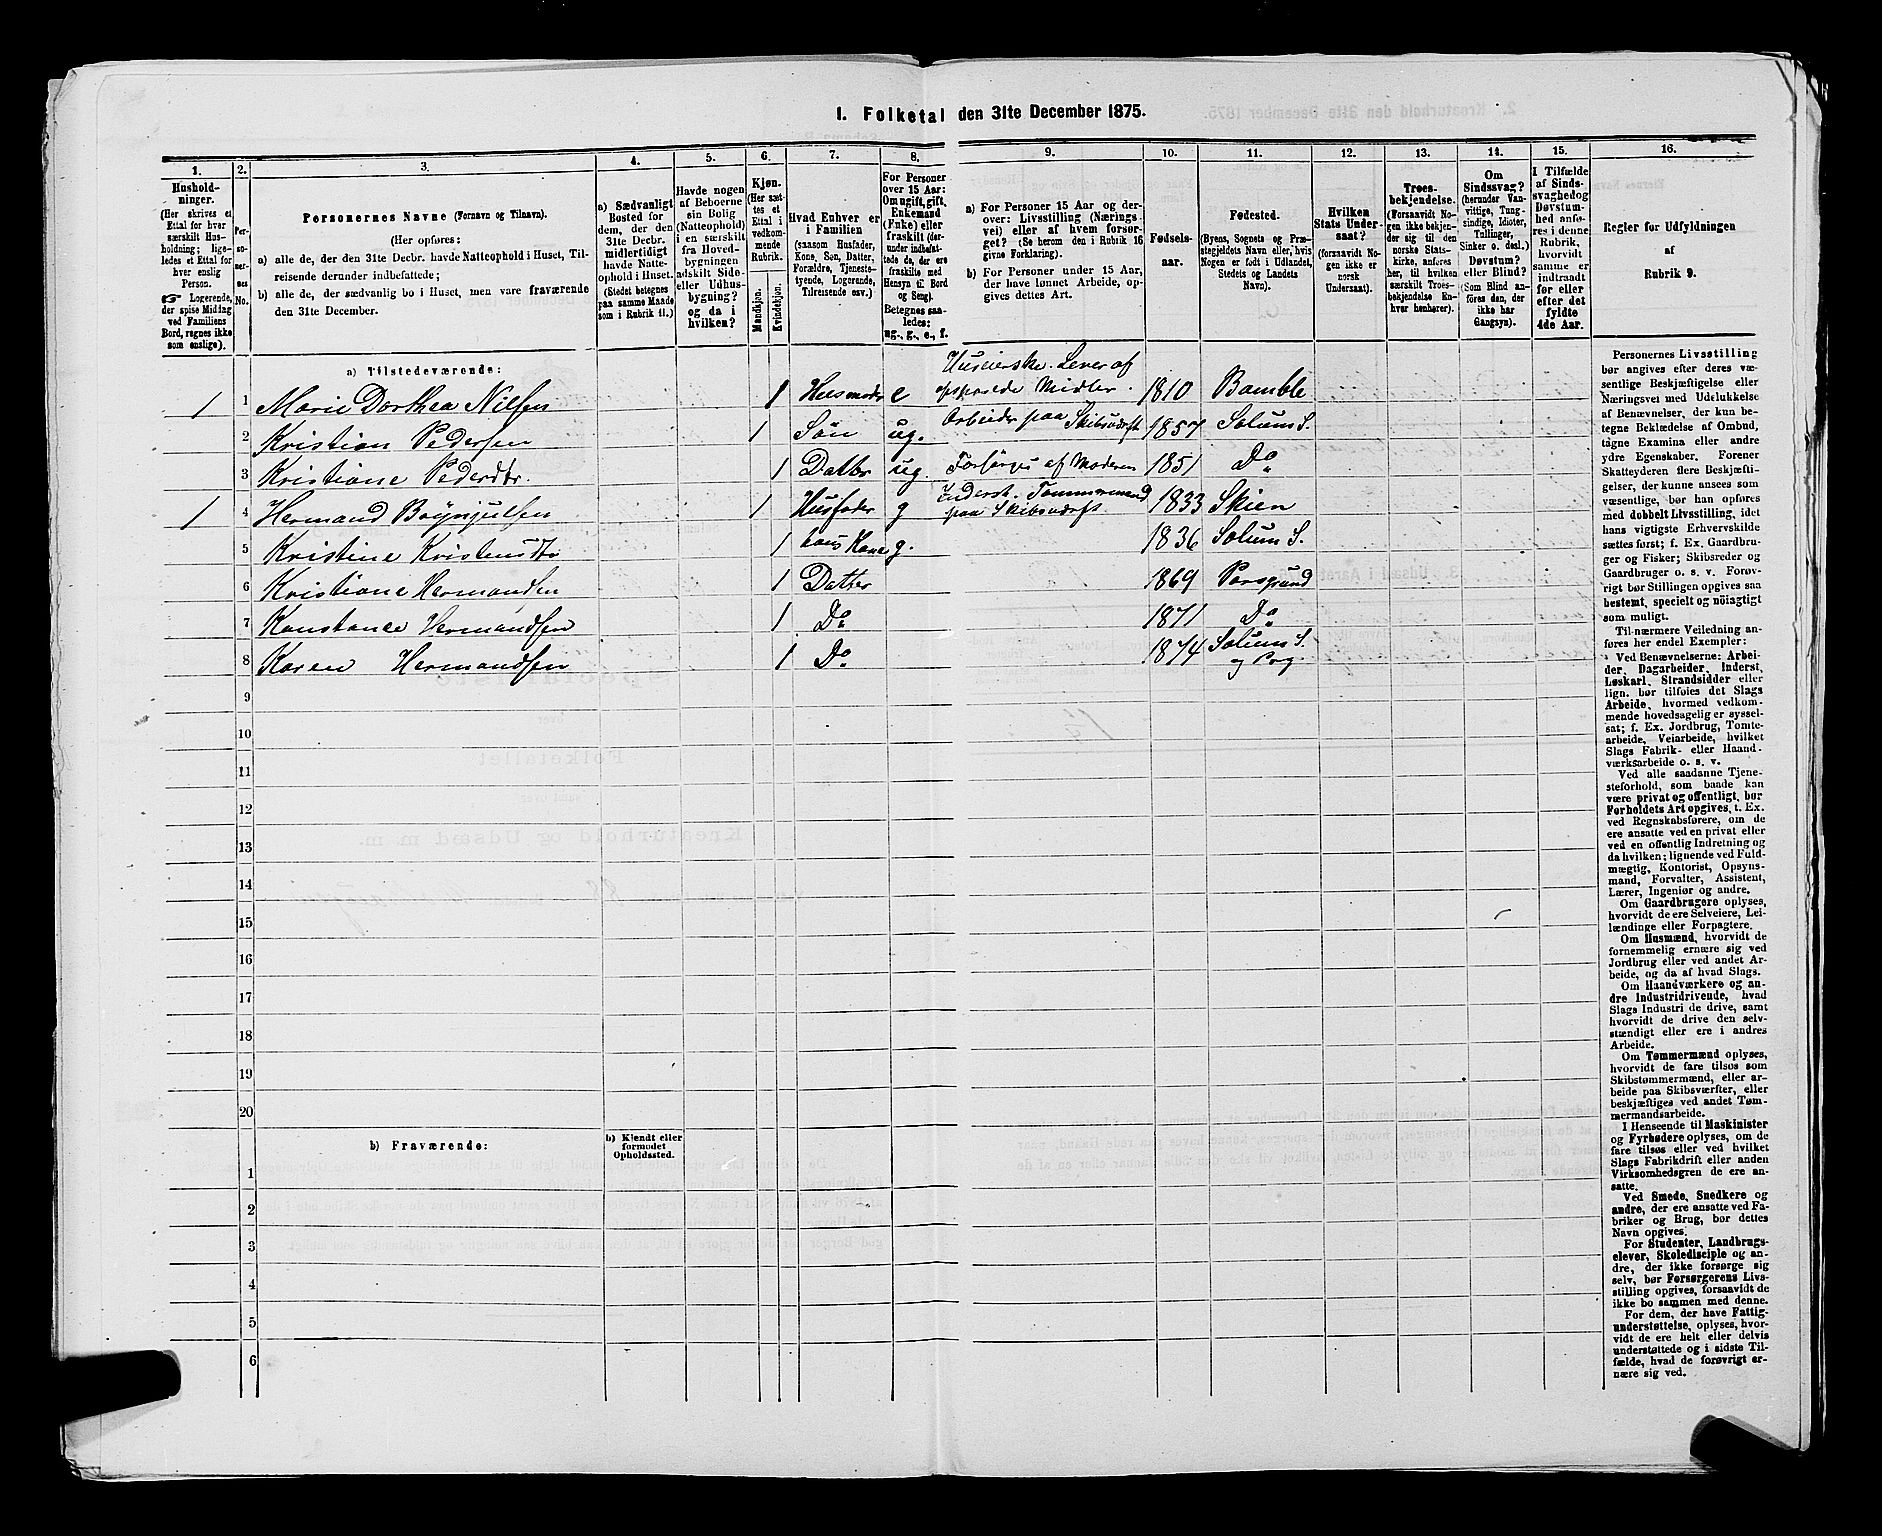 I. Folketal den 31te December 1875.
1. 2. 3. 4. 5. 6. 7. 8. 9. 10. 11. 12. 13. 14. 15. 16.
Hushold-
ninger.
(Her skrives et
Ettal for hver
særskilt Hus-
holdning; lige-
ledes et Ettal for
hver enslig
Person.
☞ Logerende,
der spise Middag
ved Familiens
Bord, regnes ikke
som enslige).
Per-
so-
ner-
nes
No.
Personernes Navne (Fornavn og Tilnavn).
(Her opføres:
a) alle de, der den 31te Decbr. havde Natteophold i Huset, Til-
reisende derunder indbefattede;
b) alle de, der sædvanlig bo i Huset, men vare fraværende
den 31te December.
a) Sædvanligt
Bosted for
dem, der den
31te Decbr.
midlertidigt
havde Natte-
ophold i Huset.
(Stedet betegnes
paa samme Maade
som i Rubrik 11.)
Havde nogen
af Beboerne
sin Bolig
(Natteophold)
i en særskilt
fra Hoved-
bygningen
adskilt Side-
eller Udhus-
bygning?
og da i
hvilken?
Kjøn.
(Her sæt-
tes et
Ettal i
vedkom-
mende
Rubrik.
Mandkjøn.
Kvindekjøn.
Hvad Enhver er
i Familien
(saasom Husfader,
Kone, Søn, Datter,
Forældre, Tjeneste-
tyende, Logerende,
Tilreisende osv.)
For Personer
over 15 Aar:
Om ugift, gift,
Enkemand
(Enke) eller
fraskilt (der-
under indbefat-
tede de, der ere
fraskilte med
Hensyn til Bord
og Seng).
Betegnes saa-
ledes:
ug., g., e., f.
a) For Personer 15 Aar og der-
over: Livsstilling (Nærings-
vei) eller af hvem forsør-
get? (Se herom den i Rubrik 16
givne Forklaring).
b) For Personer under 15 Aar,
der have lønnet Arbeide, op-
gives dettes Art.
Fødsels-
aar.
Fødested.
(Byens, Sognets og Præ-
stegjeldets Navn eller, hvis
Nogen er født i Udlandet,
Stedets og Landets
Navn).
Hvilken
Stats Under-
saat?
(forsaavidt No-
gen ikke er
norsk
Undersaat).
Troes-
bekjendelse.
(Forsaavidt No-
gen ikke bekjen-
der sig til den
norske Stats-
kirke, anføres
her, til hvilken
særskilt Troes-
bekjendelse En-
hver henhører).
Om
Sindssvag?
(herunder Van-
vittige, Tung-
sindige, Idioter,
Tullinger,
Sinker o. desl.)
Døvstum?
eller Blind?
(Som Blind an-
føres den, der
ikke har
Gangsyn).
I Tilfælde
af Sinds-
svaghed og
Døvstum-
hed anfø-
res i denne
Rubrik,
hvorvidt
samme er
indtraadt
før eller
efter det
fyldte
4de Aar.
Regler for Udfyldningen
af
Rubrik 9.
a) Tilstedeværende:
1 1 Marie Dorthea Nilsen 1 Husmoder e Huseierske. Lever af opsparede Midler. 1810 Bamble
2 Kristian Pedersen 1 Søn ug. Arbeider paa Skibsværft 1857 Solum S.
3 Kristiane Pedersdtr. 1 Datter ug. Forsørges af Moderen 1851 Do
1 4 Hermand 1 Husfader g Inderst. Tømmermand paa Skibsværft 1833 Skien
5 Kristine Kristensdtr 1 hans Kone g. 1836 Solum S.
6 Kristiane Hermandsen 1 Datter 1869 Porsgrund
7 Konstance Hermandsen 1 Do 1871 Do
8 Karen Hermandsen 1 Do 1874 Solum S. og Prg.
9
10
11
12
13
14
15
16
17
18
19
20
b) Fraværende:
b) Kjendt eller
formodet
Opholdssted.
1
2
3
4
5
6
Personernes Livsstilling
bør angives efter deres væ-
sentlige Beskjæftigelse eller
Næringsvei med Udelukkelse
af Benævnelser, der kun be-
tegne Beklædelse af Ombud,
tagne Examina eller andre
ydre Egenskaber. Forener
Skatteyderen flere Beskjæfti-
gelser, der kunne ansees som
væsentlige, bør han opføres
med dobbelt Livsstilling, idet
hans vigtigste Erhvervskilde
sættes først; f. Ex. Gaardbru-
ger og Fisker; Skibsreder og
Gaardbruger o. s. v. Forøv-
rigt bør Stillingen opgives saa
bestemt, specielt og nöiagtigt
som muligt.
Til nærmere Veiledning an-
føres her endel Exempler:
Ved Benævnelserne: Arbei-
der, Dagarbeider, Inderst,
Løskarl, Strandsidder eller
lign. bør tilføies det Slags
Arbeide, hvormed vedkom-
mende hovedsagelig er syssel-
sat; f. Ex. Jordbrug, Tomte-
arbeide, Veiarbeide, hvilket
Slags Fabrik- eller Haand-
værksarbeide o. s. v.
Ved alle saadanne Tjene-
steforhold, som baade kan
være privat og offentligt, bør
Forholdets Art opgives, t. Ex.
ved Regnskabsførere, om de
ere ansatte ved en privat eller
ved en offentlig Indretning og
da hvilken; lignende ved Fuld-
mægtig, Kontorist, Opsyns-
mand, Forvalter, Assistent,
Lærer, Ingeniør og andre.
Om Gaardbrugere oplyses,
hvorvidt de ere Selveiere, Lei-
lændinge eller Forpagtere.
Om Husmænd, hvorvidt de
fornemmelig ernære sig ved
Jordbrug eller ved andet Ar-
beide, og da af hvad Slags.
Om Haandværkere og an-
dre Industridrivende, hvad
Slags Industri de drive, samt
hvorvidt de drive den selv-
stændigt eller ere i andres
Arbeide.
Om Tømmermænd oplyses,
hvorvidt de fare tilsøs som
Skibstømmermænd, eller ar-
beide paa Skibsværfter, eller
beskjæftiges ved andet Tøm-
mermandsarbeide.
I Henseende til Maskinister
og Fyrbødere oplyses, om de
fare tilsøs eller ved hvilket
Slags Fabrikdrift eller anden
Virksomhedsgren de ere an-
satte.
Ved Smede, Snedkere og
andre, der ere ansatte ved Fa-
briker og Brug, bør dettes
Navn opgives.
For Studenter, Landbrugs-
elever, Skoledisciple og an-
dre, der ikke forsørge sig
selv, bør Forsørgerens Livs-
stilling opgives, forsaavidt de
ikke bo sammen med denne.
For dem, der have Fattig-
understøttelse, oplyses, hvor-
vidt de ere helt eller delvis
understøttede og i sidste Til-
fælde, hvad de forøvrigt er-
nære sig ved.